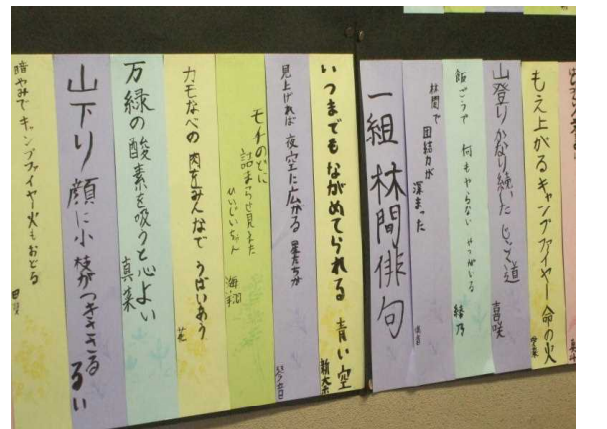 もえ上がるキャンプファイヤー 命の火
山登りかなり続いた じゃり道
喜咲
飯ごうで 何もやらない やつがいる
綾乃
林間で
団結力が
深まった
一組 林間俳句
いつまでもながめてられる 青い空
見上げれば 夜空に広がる 星たちが
琴音
モチのどに
詰まらせ見えた
ひいじいちゃん
海翔
カモなべの 肉をみんなで うばいあう
万緑の酸素を吸うと心よい
真菜
山下り 顔に小枝がつきささる
るい
暗やみで キャンプファイヤー火もおどる